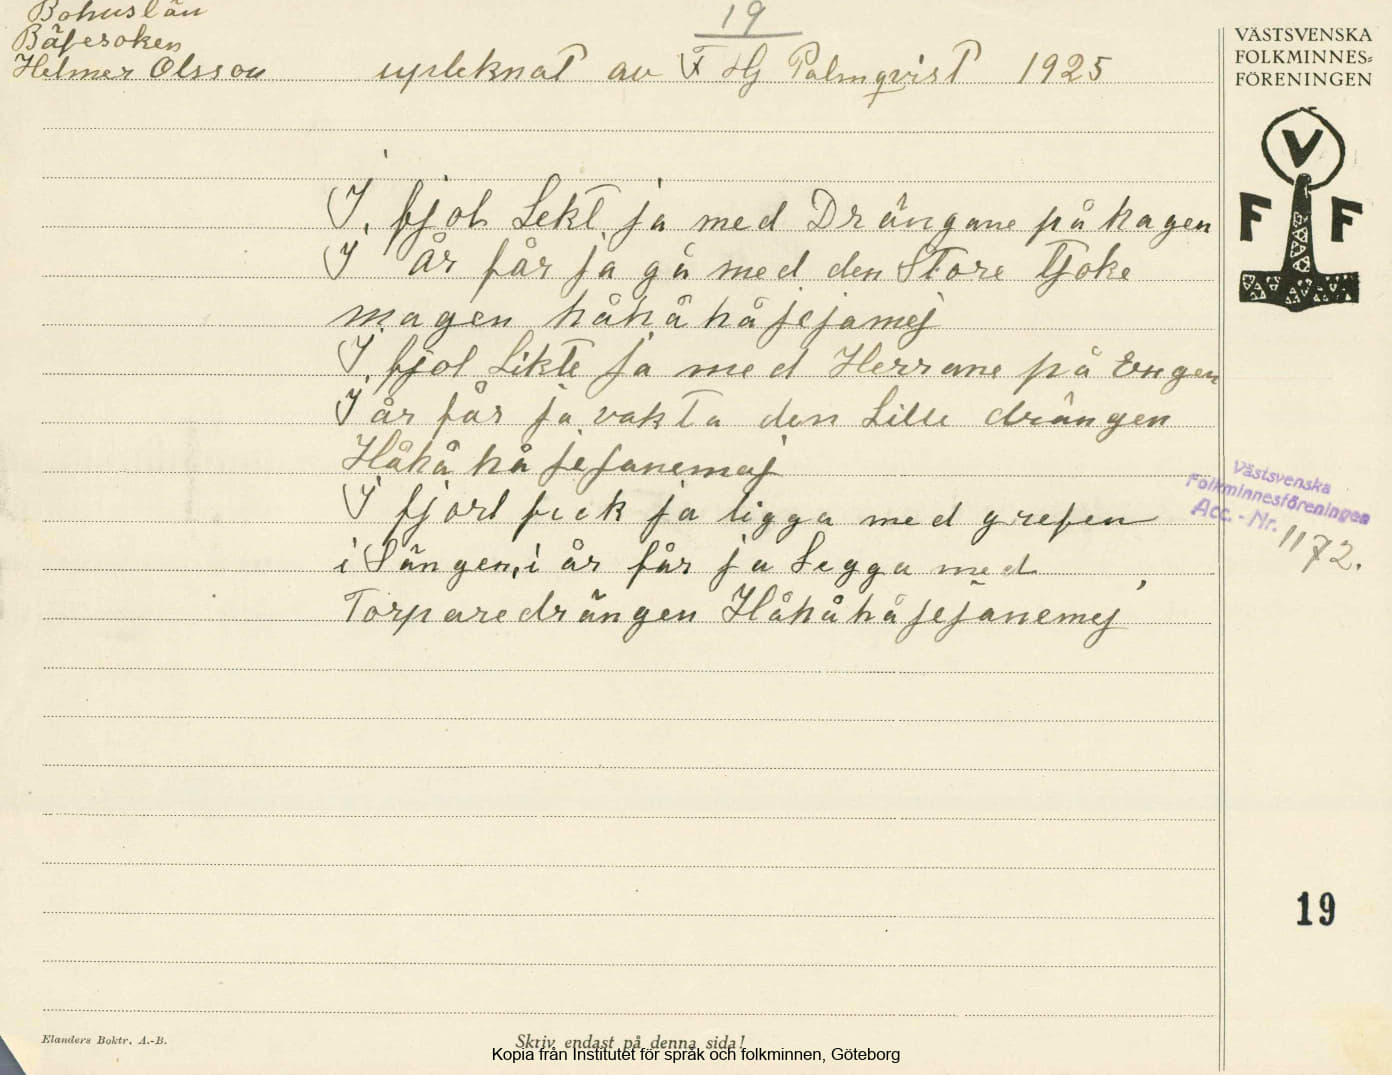 19
Bohuslän
Bäfesoken
Helmer Olsson upteknat av F Hj Palmqvist 1925
VÄSTSVENSKA
FOLKMINNES=
FÖRENINGEN
V
F F
I fjol Lekt ja med Drängane på hagen
I År får ja gå med den Store Tjoke
magen håhåhåjejamej
I fjol Likte ja med Herrane på Engen
I år får ja vakta den Lille drängen
Håhå hå jejanemaj
I fjorl fick ja ligga med grefen
i Sängen, i år får ja Legga med
Torparedrängen Håhåhåjejanemej
Västsvenska
Folkminnesföreningen
Acc. - Nr. 1172.
19
Elanders Boktr. A.-B.
Skriv endast på denna sida!
Kopia från Institutet för språk och folkminnen, Göteborg